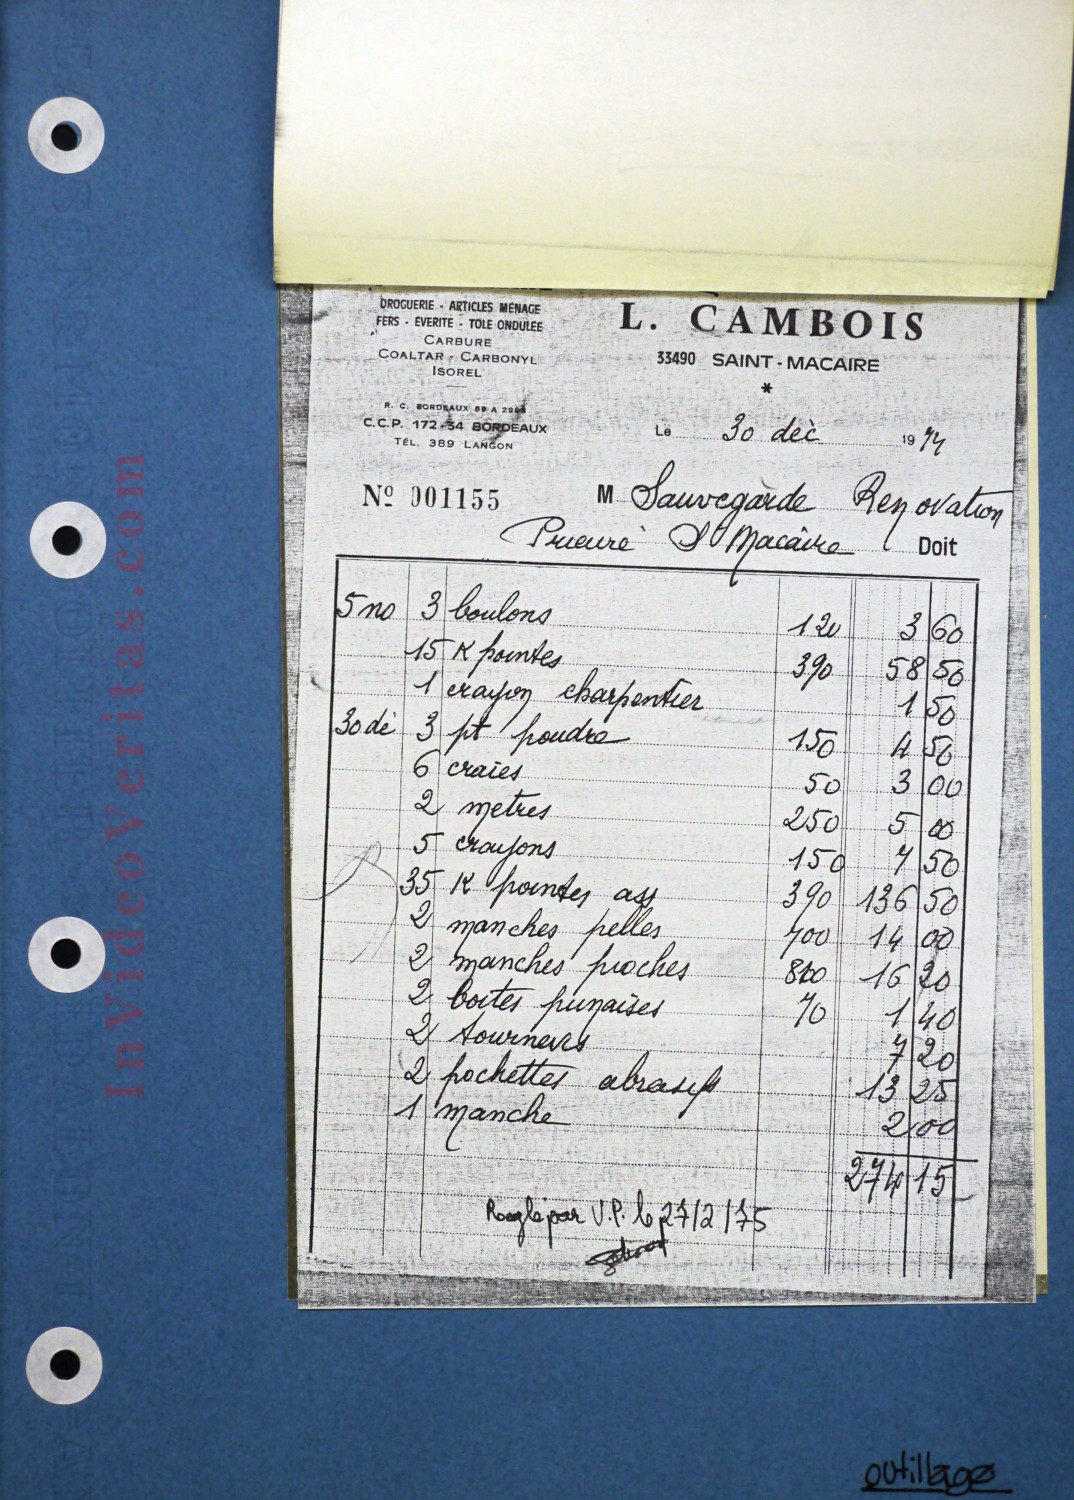 DROGUERIE - ARTICLES MÉNAGE
FERS - EVERITE - TOLE ONDULÉE
CARBURE
COALTAR - CARBONYL
ISOREL
R. C. BORDEAUX 59 A
C.C.P. 172-34 BORDEAUX
TÉL. 389 LANGON
L. CAMBOIS
33490 SAINT-MACAIRE
*
Le 30 déc 1974
Nº 001155
M Sauvegarde Renovation
Prieuré St Macaire Doit
5 no 3 boulons 120 3 60
15 K pointes 390 58 50
1 crayon charpentier 1 50
30 dé 3 pt poudre 150 4 50
6 craies 50 3 00
2 metres 250 5 00
5 crayons 150 7 50
35 K pointes ass 390 136 50
2 manches pelles 700 14 00
2 manches pioches 810 16 20
2 boites punaises 70 1 40
2 tournevis 7 20
2 pochettes abrasifs 13 25
1 manche 2 00
274 15
par V.P. le 27/2/75
InVideoVeritas.com
outillage